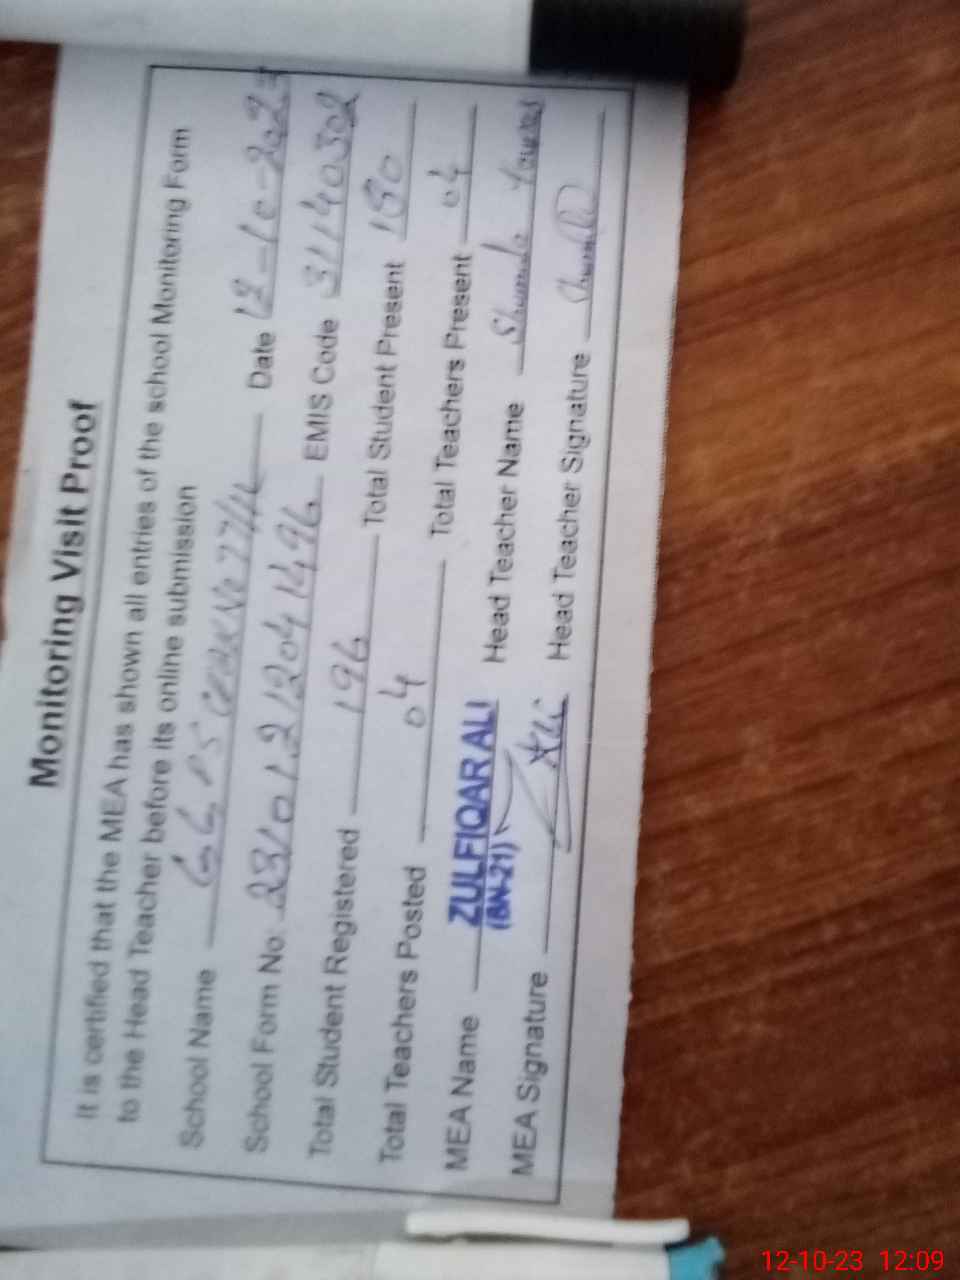 Monitoring Visit Proof
It is certified that the MEA has shown all entries of the school Monitoring Form
to the Head Teacher before its online submission
School Name GGPS Date 12-10-202
School Form No: EMIS Code 31140302
Total Student Registered 196 Total Student Present 190
Total Teachers Posted 04 Total Teachers Present 04
MEA Name ZULFIQAR ALI Head Teacher Name
(BN-21)
MEA Signature Head Teacher Signature
12-10-23 12:09